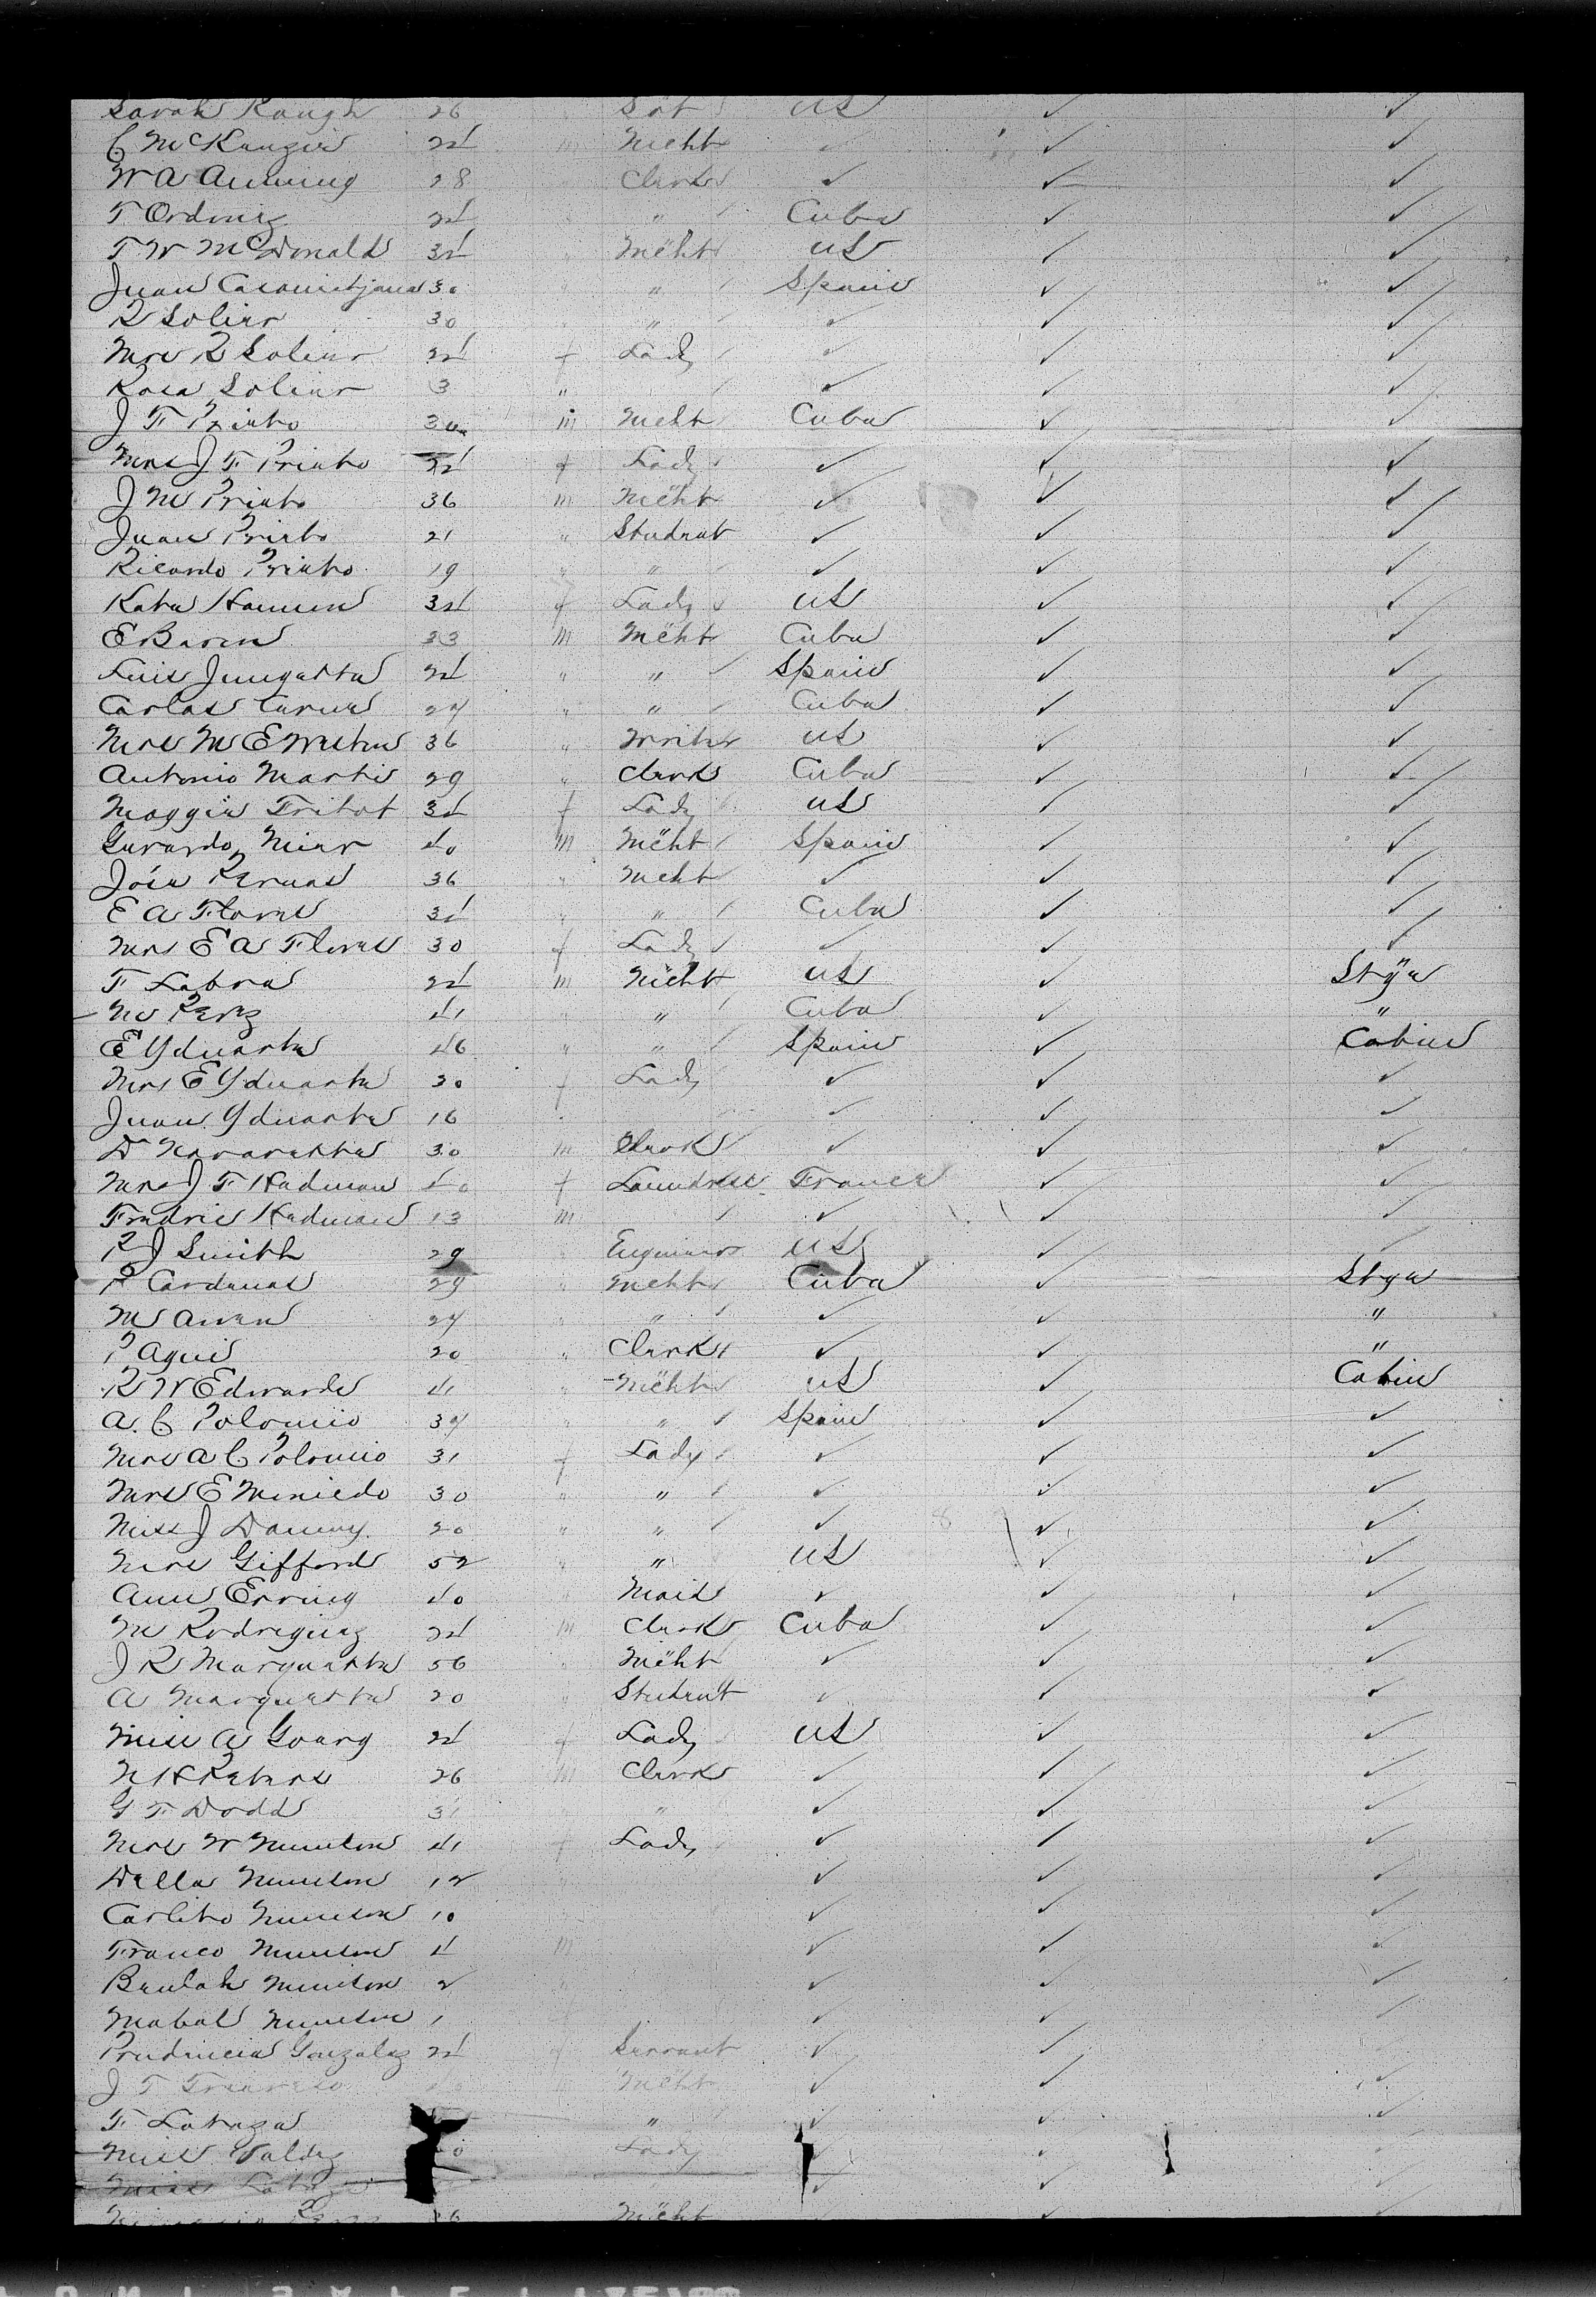 Sarah Kaugh 26 Srt US ✓ ✓
C McKenzie 24 m Mcht ✓ ✓ ✓
W A Anning 28 " Clerk ✓ ✓ ✓
T Ordonez 24 " " Cuba ✓ ✓
T W McDonald 34 " Mcht US ✓ ✓
Juan Casamitjana 30 " " Spain ✓ ✓
R Solier 30 " " ✓ ✓ ✓
Mrs R Solier 24 f Lady ✓ ✓ ✓
Rosa Solier 3 " ✓ ✓ ✓
J F Prieto 30 m Mcht Cuba ✓ ✓
Mrs J F Prieto 24 f Lady ✓ ✓ ✓
J M Prieto 36 m Mcht ✓ ✓ ✓
Juan Prieto 21 " Student ✓ ✓ ✓
Ricardo Prieto 19 " " ✓ ✓ ✓
Kate Hannen 34 f Lady US ✓ ✓
E Baren 23 m Mcht Cuba ✓ ✓
Luis 24 " " Spain ✓ ✓
Carlos 27 " " Cuba ✓ ✓
Mrs M E 36 " Writer US ✓ ✓
Antonio Marti 29 " Clerk Cuba ✓ ✓
Maggie Tribot 34 f Lady US ✓ ✓
Gerardo Nier 40 m Mcht Spain ✓ ✓
José Pernas 36 " Mcht ✓ ✓ ✓
E A Flores 34 " " Cuba ✓ ✓
Mrs E A Flores 30 f Lady ✓ ✓ ✓
F Labra 24 m Mcht US ✓ Stge
M Perz 41 " " Cuba ✓ "
E Yduarte 46 " " Spain ✓ Cabin
Mrs E Yduarte 30 f Lady ✓ ✓ ✓
Juan Yduarte 16 " ✓ ✓ ✓
D Navarette 30 m Clerk ✓ ✓ ✓
Mrs J F Hadman 40 f Laundress France ✓ ✓
Fredric Hadman 13 m ✓ ✓ ✓
P J Smith 29 " Engineer US ✓ ✓
P Cardenas 29 " Mcht Cuba ✓ Stge
M 27 " " ✓ ✓ "
P 20 " Clerk ✓ ✓ "
R W Edwards 41 " Mcht US ✓ Cabin
A. C Polonio 37 " " Spain ✓ ✓
Mrs A C Polonio 31 f Lady ✓ ✓ ✓
Mrs E Meniedo 30 " " ✓ ✓ ✓
Miss J 20 " " ✓ ✓ ✓
Mrs Gifford 52 " " US ✓ ✓
Ann Erring 40 " Maid ✓ ✓ ✓
M Rodriguez 24 m Clerk Cuba ✓ ✓
J R Marquette 56 " Mcht ✓ ✓ ✓
A Marquette 20 " Student ✓ ✓ ✓
Miss A Goarg 24 f Lady US ✓ ✓
N H Peters 26 m Clerk ✓ ✓ ✓
G F Dodd 31 " " ✓ ✓ ✓
Mrs W Munson 41 f Lady ✓ ✓ ✓
Della Munson 12 " ✓ ✓ ✓
Carlito Munson 10 ✓ ✓ ✓
Franco Munson 4 m ✓ ✓ ✓
Beulah Munson 2 " ✓ ✓ ✓
Mabel Munson 1 " ✓ ✓ ✓
Prudencia Gonzalez 24 f Servant ✓ ✓ ✓
J T Mcht ✓ ✓ ✓
F " ✓ ✓ ✓
Miss Valdez Lady ✓ ✓
Miss ✓ ✓ ✓
36 Mcht ✓ ✓